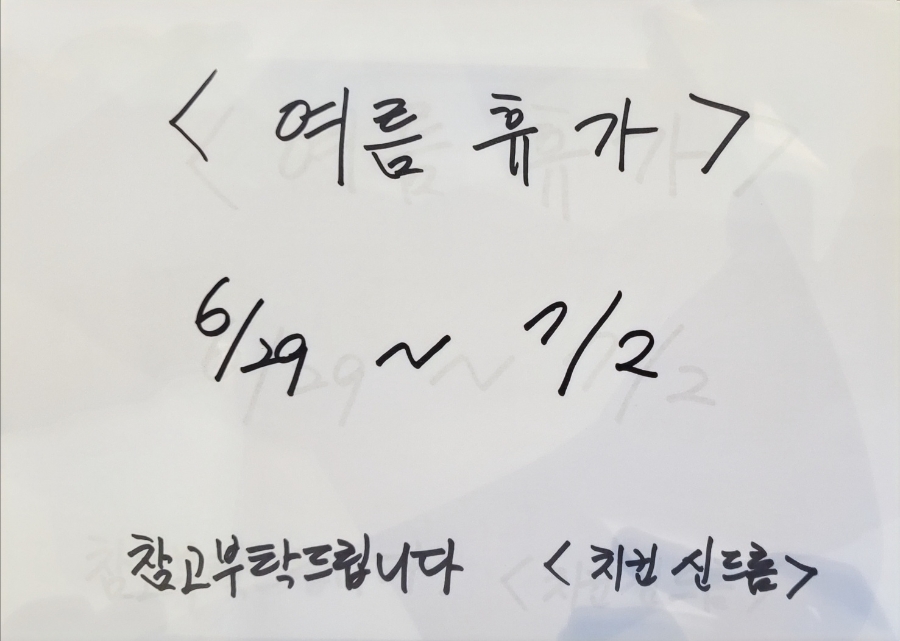 < 여름 휴가 >
6/29 ~ 7/2
참고부탁드립니다 < 치킨 신드롬 >